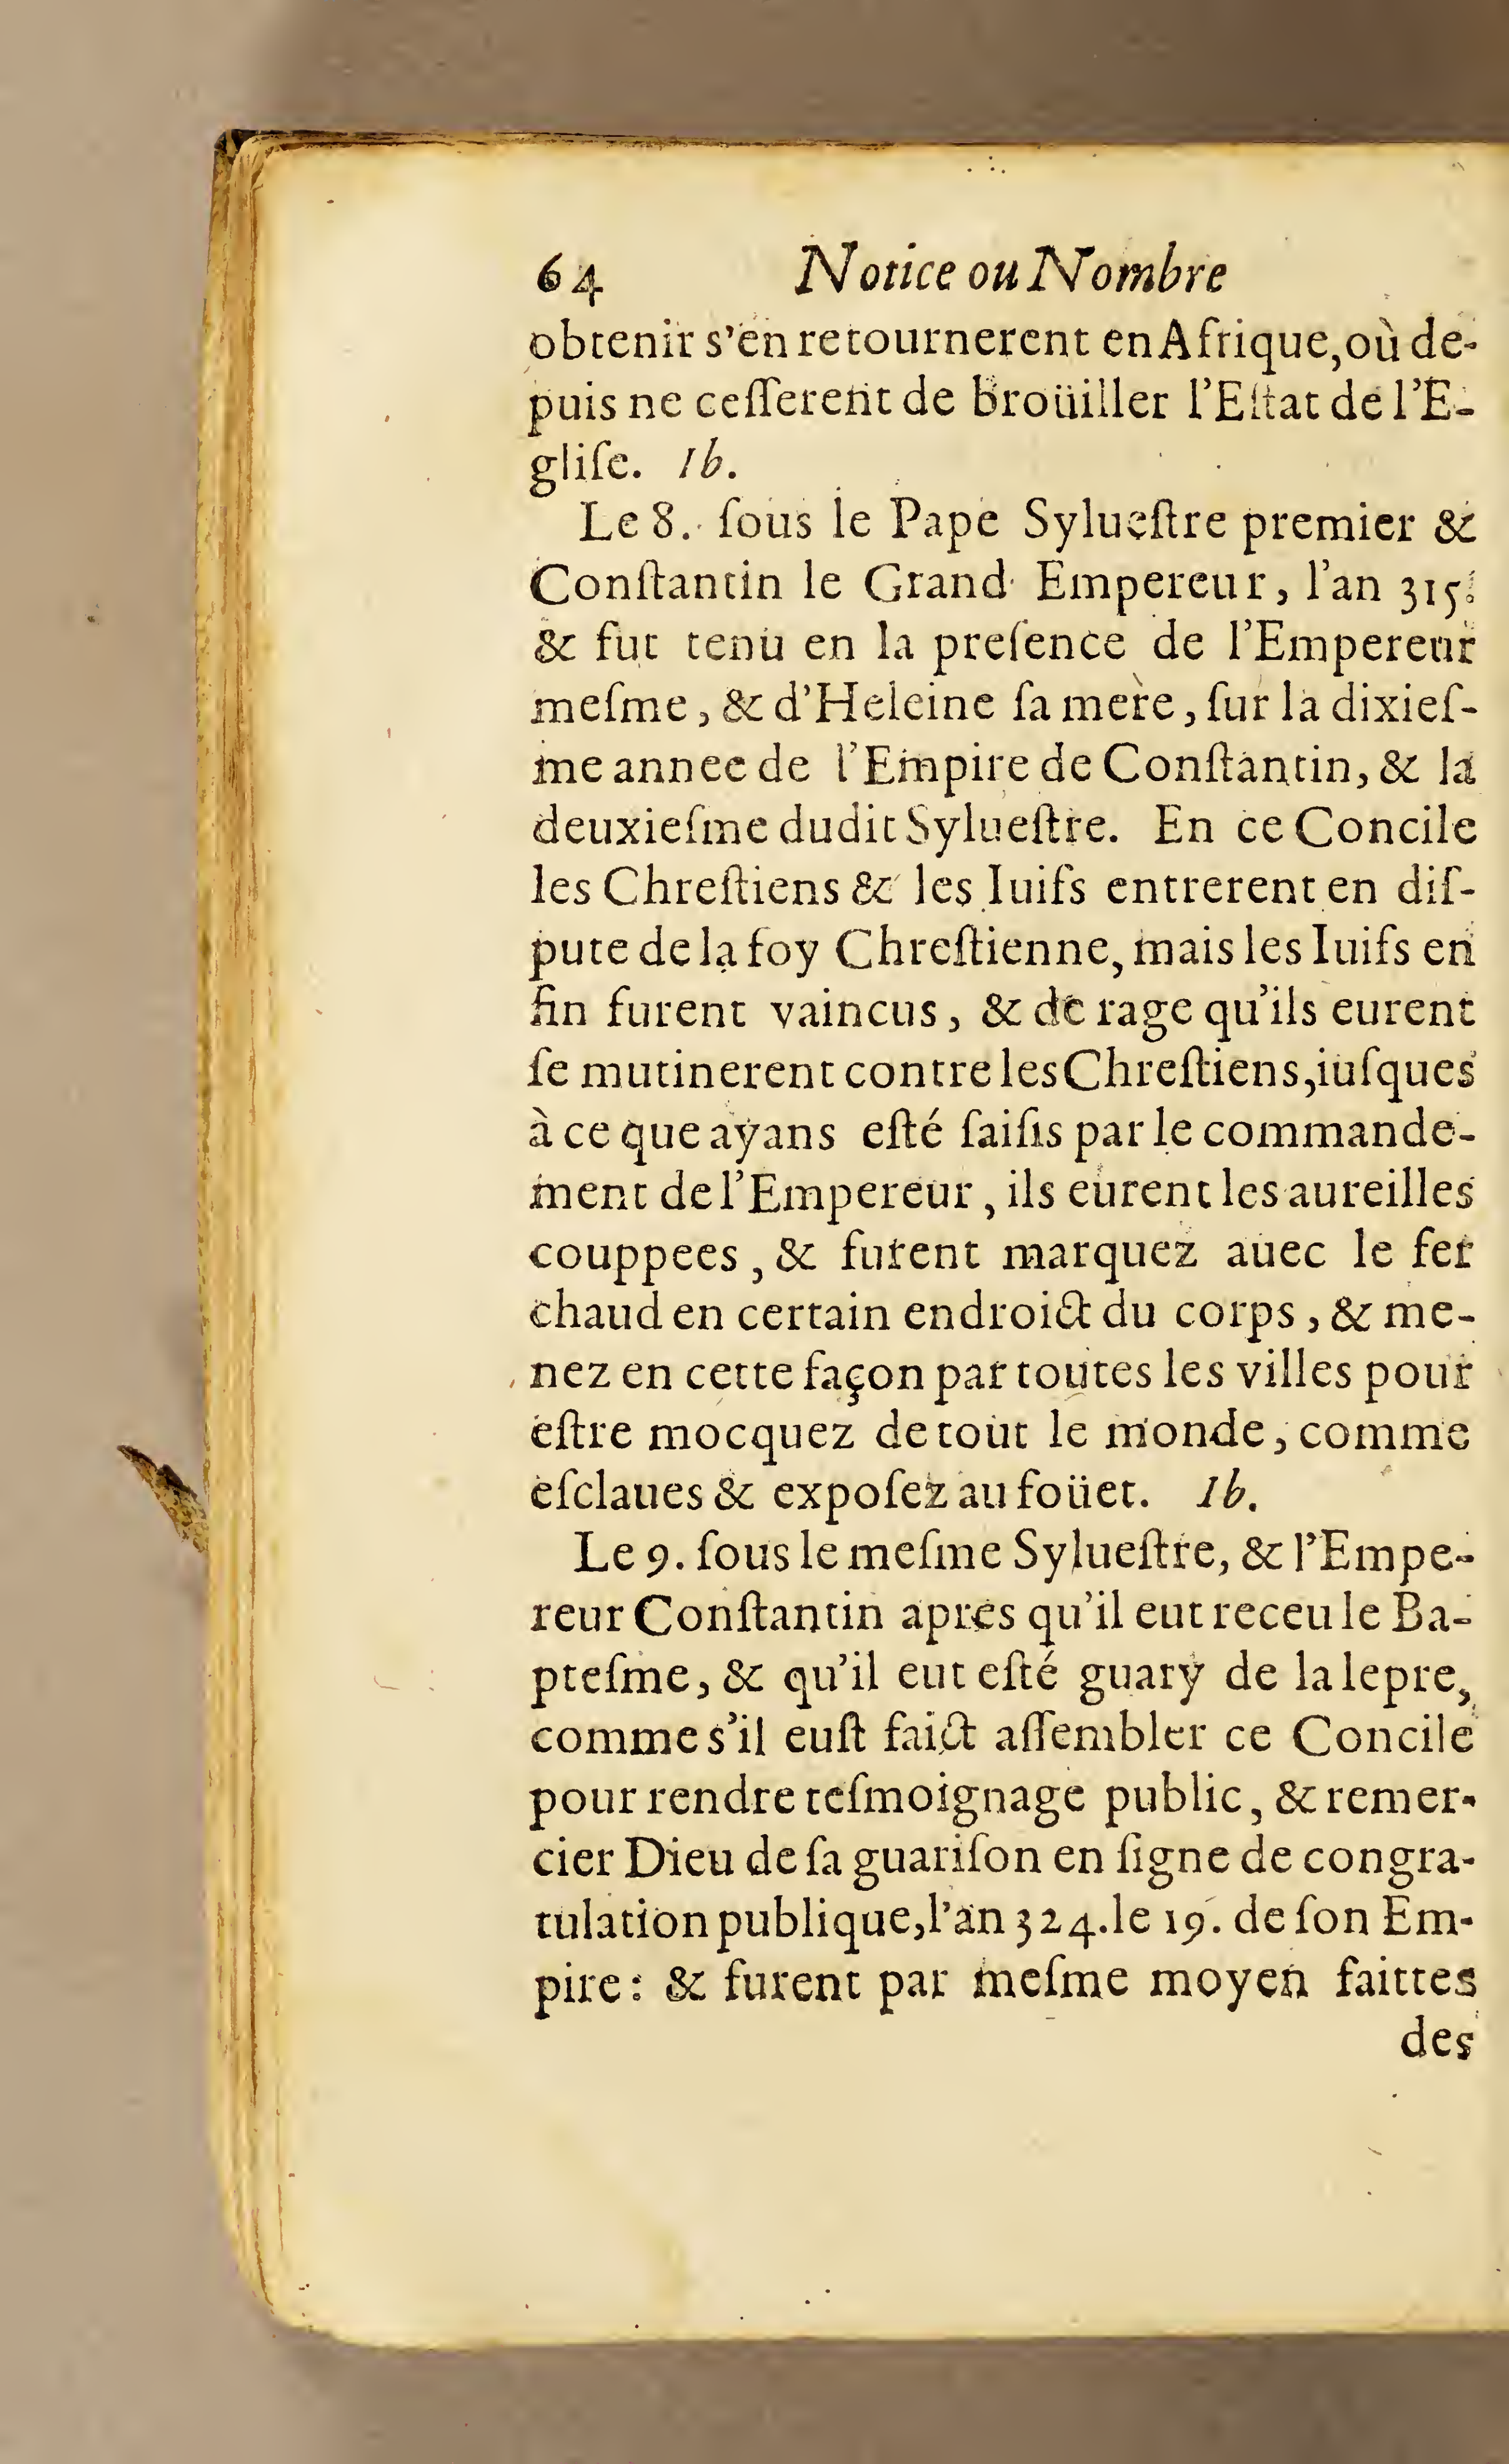 64 Notice ou Nombre
obtenir s'en retournerent en Afrique, où de-
puis ne ceſſerent de broüiller l'Eſtat de l'E-
gliſe. Ib.
Le 8. ſous le Pape Sylueſtre premier &
Conſtantin le Grand Empereur, l'an 315.
& fut tenu en la preſence de l'Empereur
meſme, & d'Heleine ſa mere, ſur la dixieſ-
me annee de l'Empire de Conſtantin, & la
deuxieſme dudit Sylueſtre. En ce Concile
les Chreſtiens & les Iuifs entrerent en diſ-
pute de la foy Chreſtienne, mais les Iuifs en
fin furent vaincus, & de rage qu'ils eurent
ſe mutinerent contre les Chreſtiens, iuſques
à ce que ayans eſté ſaiſis par le commande-
ment de l'Empereur, ils eurent les aureilles
couppees, & furent marquez auec le fer
chaud en certain endroict du corps, & me-
nez en cette façon par toutes les villes pour
eſtre mocquez de tout le monde, comme
eſclaues & expoſez au foüet. Ib.
Le 9. ſous le meſme Sylueſtre, & l'Empe-
reur Conſtantin apres qu'il eut receu le Ba-
pteſme, & qu'il eut eſté guary de la lepre,
comme s'il euſt faict aſſembler ce Concile
pour rendre teſmoignage public, & remer-
cier Dieu de ſa guariſon en ſigne de congra-
tulation publique, l'an 324. le 19. de ſon Em-
pire: & furent par meſme moyen faittes
des